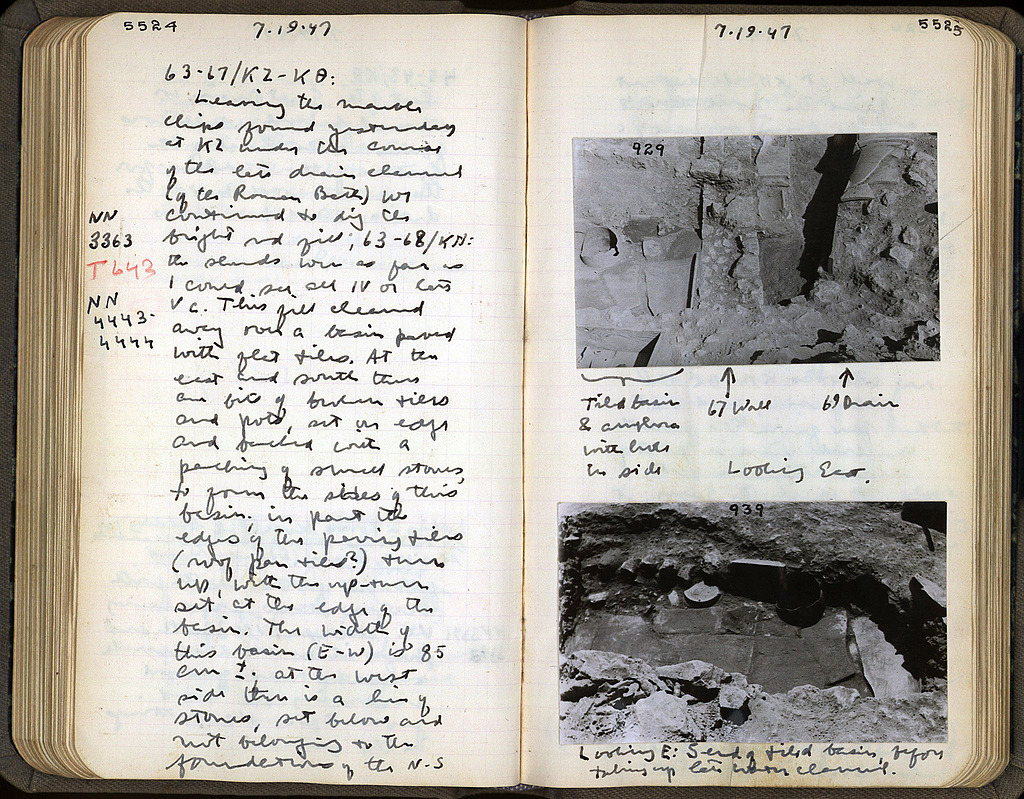 5524
7.19.47
63-67/KZ-KΘ:
Leaving the marble
chips found yesterday
at KZ under the course
of the late drain channel
(of the Roman Bath) we
continued to dig the
bright red fill; 63-68/KH:
the sherds were as far as
I could see all IV or late
V c. This fill cleaned
away over a basin paved
with flat tiles. At the
east and south there
are bits of broken tiles
and pots, set on edge
and backed with a
packing of small stones,
to form the sides of this
basin; in part the
edges of the paving tiles
(roof pan tiles?) turn
up, with the up-turn
set at the edge of the
basin. The width of
this basin (E-W) is 85
cm ±. at the west
side there is a line of
stones, set below and
not belonging to the
foundations of the N-S
NN
3363
T643
NN
4443-
4444
5525
7.19.47
929
Tiled basin
& amphora
with hole
in side
67 Wall
69 Drain
Looking East.
939
Looking E: S end of tiled basin, before
taking up late water channel.